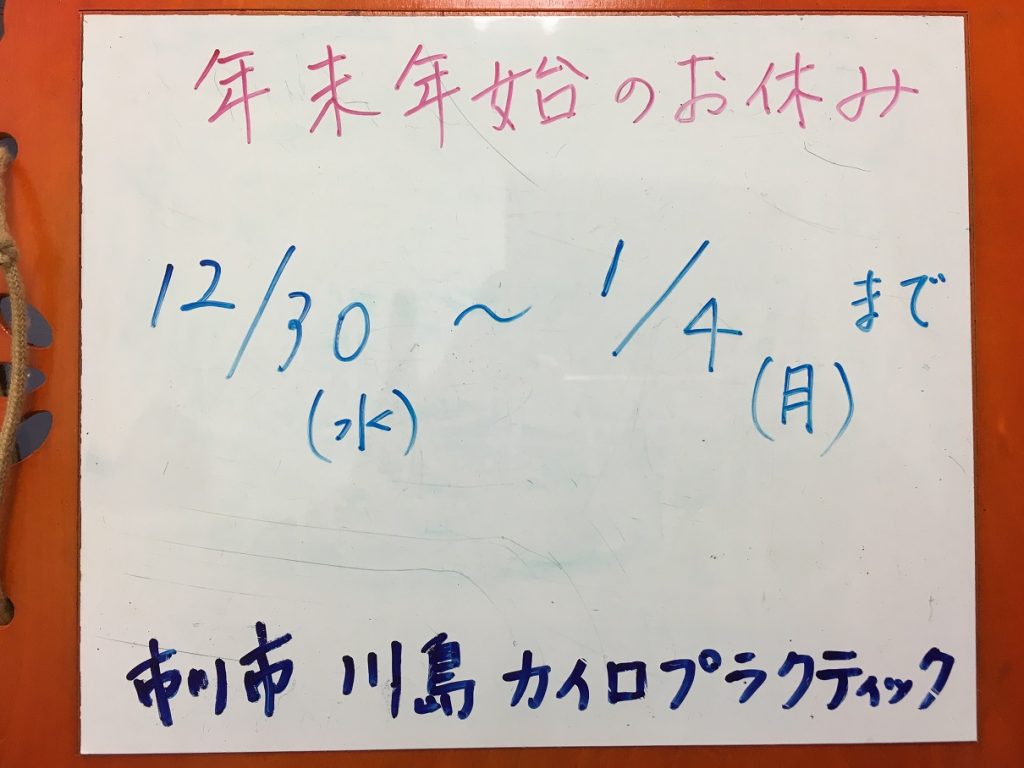 年末年始のお休み
12/30 ～ 1/4 まで
(水) (月)
市川市 川島カイロプラクティック